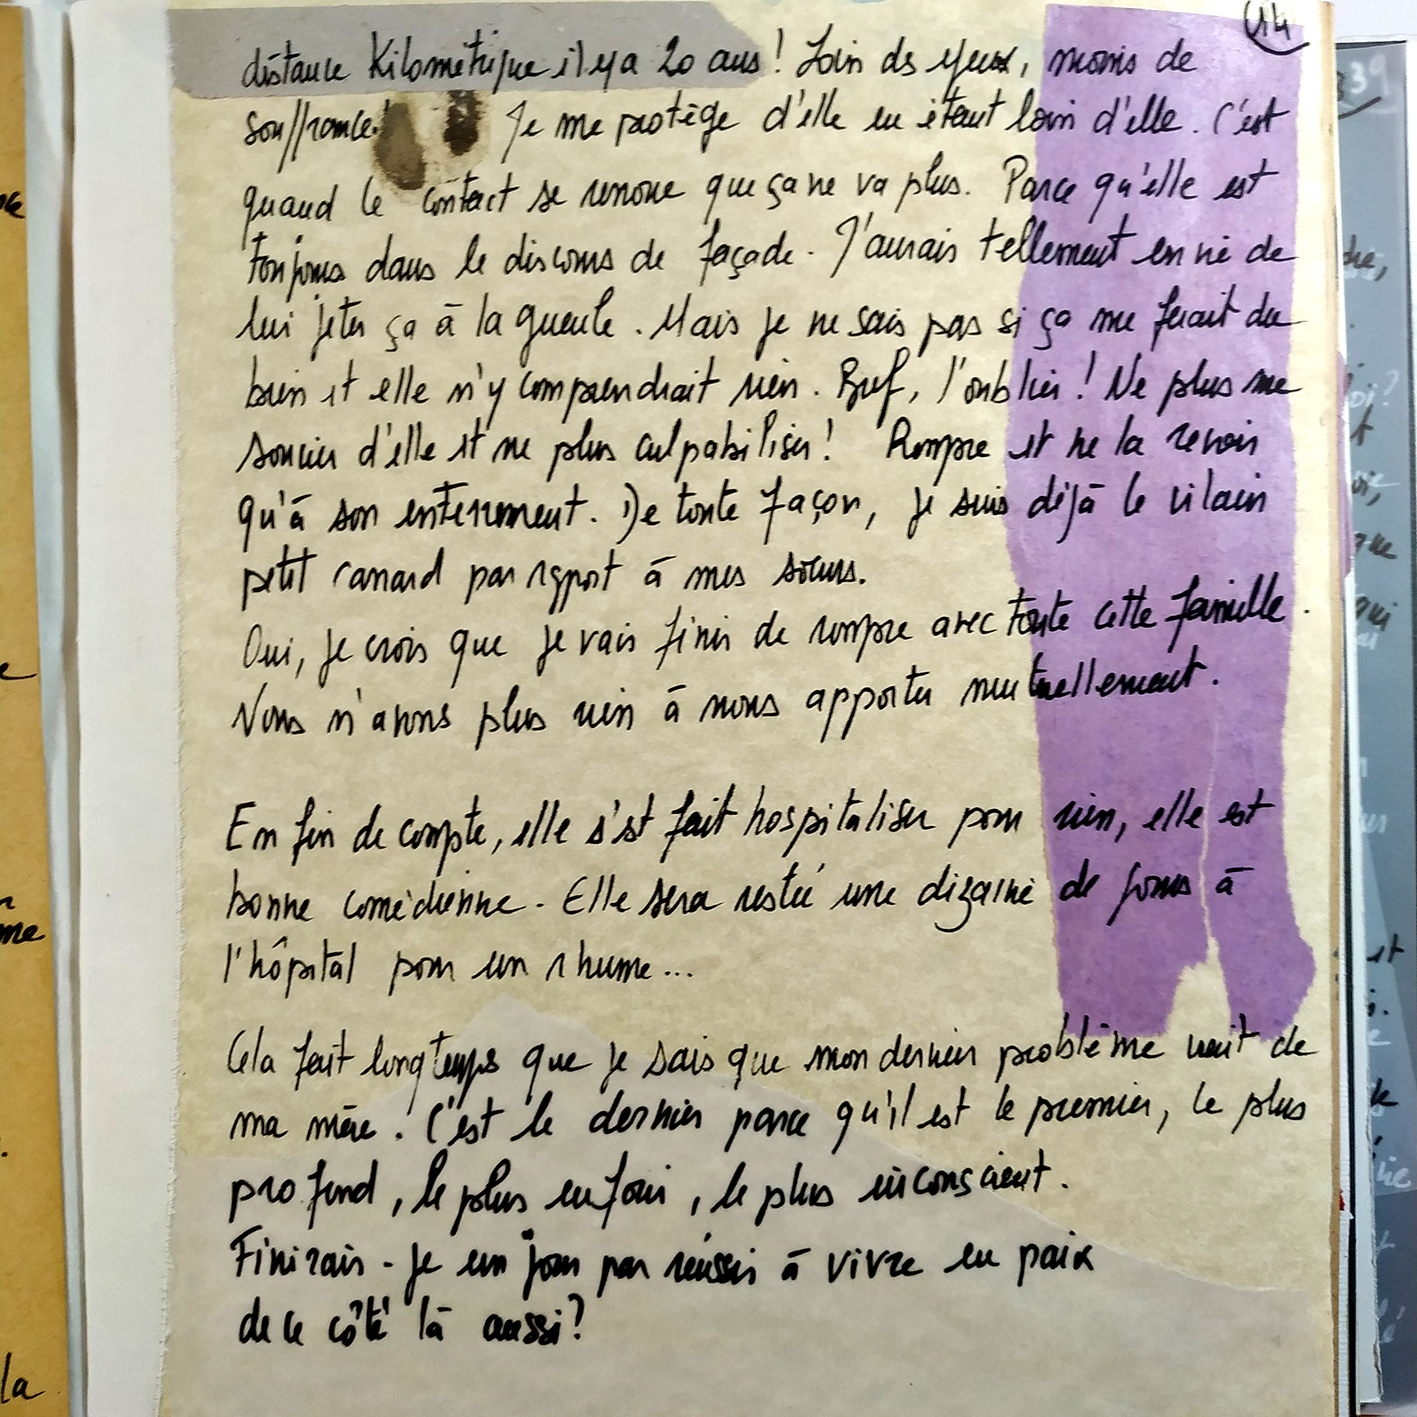 14
distance Kilométrique il y a 20 ans ! Loin des yeux, moins de
souffrance ! Je me protège d'elle en étant loin d'elle. C'est
quand le contact se renoue que ça ne va plus. Parce qu'elle est
toujours dans le discours de façade. J'aurais tellement envie de
lui jeter ça à la gueule. Mais je ne sais pas si ça me ferait du
bien et elle n'y comprendrait rien. Bref, l'oublier ! Ne plus me
soucier d'elle et ne plus culpabiliser ! Rompre et ne la revoir
qu'à son enterrement. De toute façon, je suis déjà le vilain
petit canard par rapport à mes sœurs.
Oui, je crois que je vais finir de rompre avec toute cette famille.
Nous n'avons plus rien à nous apporter mutuellement.
En fin de compte, elle s'est fait hospitaliser pour rien, elle est
bonne comédienne. Elle sera restée une dizaine de jours à
l'hôpital pour un rhume...
Cela fait longtemps que je sais que mon dernier problème vient de
ma mère. C'est le dernier parce qu'il est le premier, le plus
profond, le plus enfoui, le plus inconscient.
Finirais-je un jour par réussir à vivre en paix
de ce côté là aussi ?